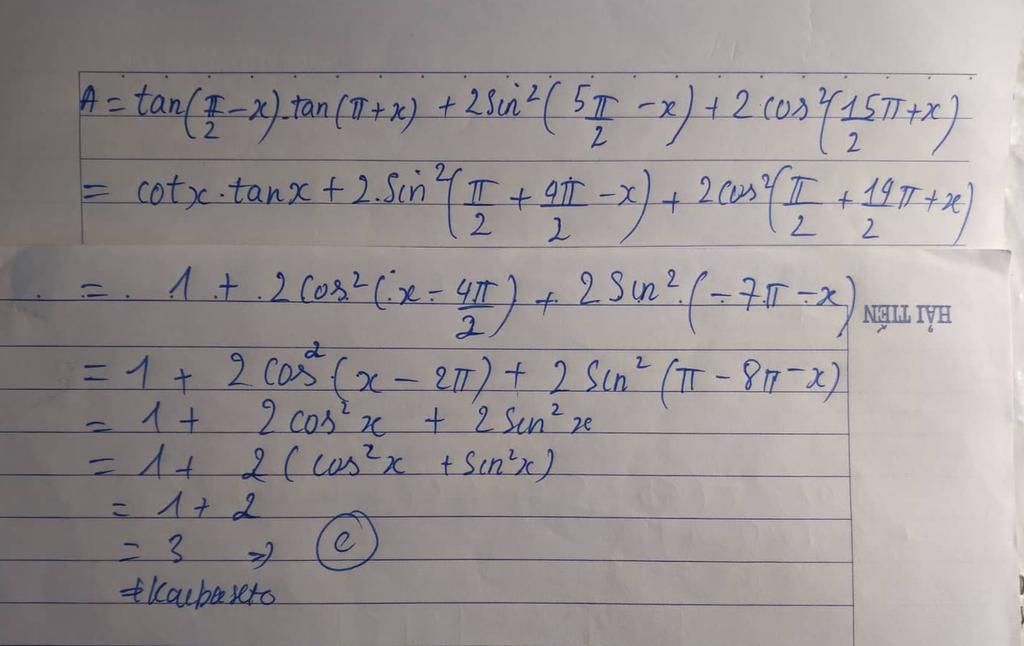 A = tan(π/2 - x).tan(π + x) + 2 sin²(5π/2 - x) + 2 cos²(15π/2 + x)
= cotx.tanx + 2.sin²(π/2 + 4π/2 - x) + 2cos²(π/2 + 14π/2 + x)
= 1 + 2cos²(x - 4π/2) + 2 sin²(-7π - x)
HẢI TIẾN
= 1 + 2 cos²(x - 2π) + 2 sin²(π - 8π - x)
= 1 + 2 cos²x + 2 sin²x
= 1 + 2(cos²x + sin²x)
= 1 + 2
= 3 => C